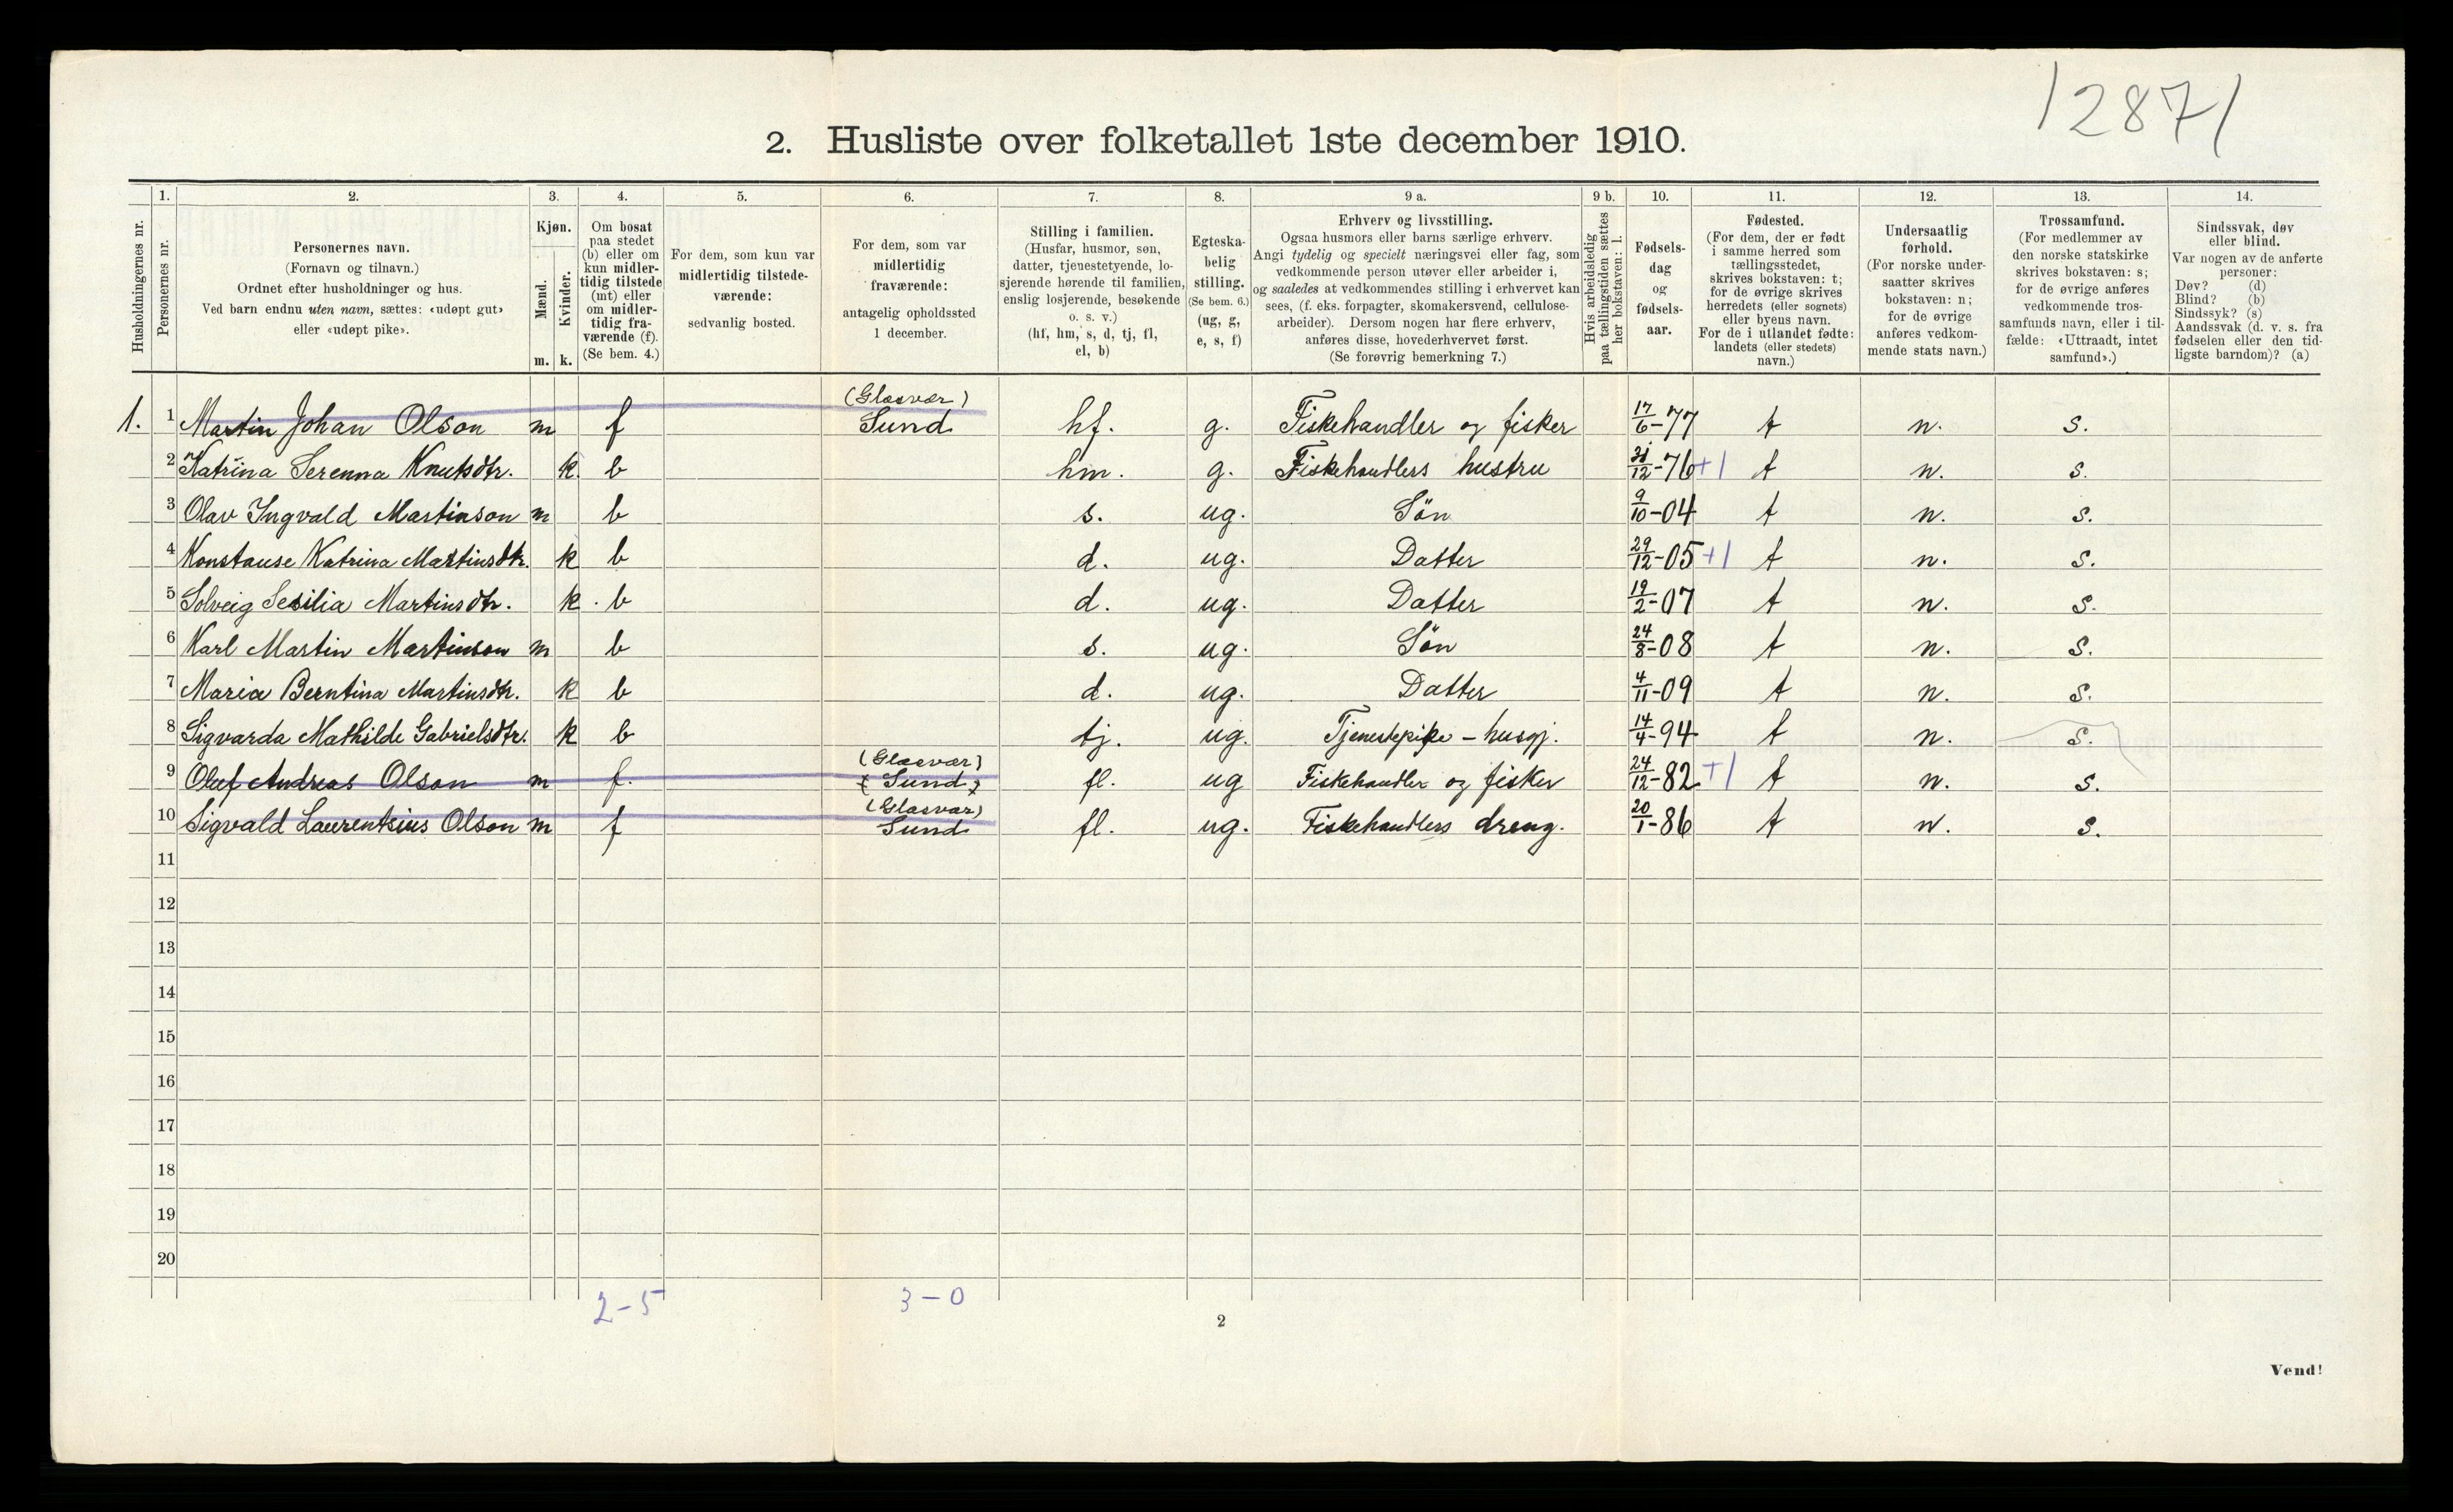 1287/
2. Husliste over folketallet 1ste december 1910.
Husholdningernes nr.
1.
Personernes nr.
2.
Personernes navn.
(Fornavn og tilnavn.)
Ordnet efter husholdninger og hus.
Ved barn endnu uten navn, sættes: «udøpt gut»
eller «udøpt pike».
3.
Kjøn.
Mænd.
Kvinder.
m. k.
4.
Om bosat
paa stedet
(b) eller om
kun midler-
tidig tilstede
(mt) eller
om midler-
tidig fra-
værende (f).
(Se bem. 4.)
5.
For dem, som kun var
midlertidig tilstede-
værende:
sedvanlig bosted.
6.
For dem, som var
midlertidig
fraværende:
antagelig opholdssted
1 december.
7.
Stilling i familien.
(Husfar, husmor, søn,
datter, tjenestetyende, lo-
sjerende hørende til familien,
enslig losjerende, besøkende
o. s. v.)
(hf, hm, s, d, tj, fl,
el, b)
8.
Egteska-
belig
stilling.
(Se bem. 6.)
(ug, g,
e, s, f)
9 a.
Erhverv og livsstilling.
Ogsaa husmors eller barns særlige erhverv.
Angi tydelig og specielt næringsvei eller fag, som
vedkommende person utøver eller arbeider i,
og saaledes at vedkommendes stilling i erhvervet kan
sees, (f. eks. forpagter, skomakersvend, cellulose-
arbeider). Dersom nogen har flere erhverv,
anføres disse, hovederhvervet først.
(Se forøvrig bemerkning 7.)
9 b.
Hvis arbeidsledig
paa tællingstiden sættes
her bokstaven: l.
10.
Fødsels-
dag
og
fødsels-
aar.
11.
Fødested.
(For dem, der er født
i samme herred som
tællingsstedet,
skrives bokstaven: t;
for de øvrige skrives
herredets (eller sognets)
eller byens navn.
For de i utlandet fødte:
landets (eller stedets)
navn.)
12.
Undersaatlig
forhold.
(For norske under-
saatter skrives
bokstaven: n;
for de øvrige
anføres vedkom-
mende stats navn.)
13.
Trossamfund.
(For medlemmer av
den norske statskirke
skrives bokstaven: s;
for de øvrige anføres
vedkommende tros-
samfunds navn, eller i til-
fælde: «Uttraadt, intet
samfund».)
14.
Sindssvak, døv
eller blind.
Var nogen av de anførte
personer:
Døv? (d)
Blind? (b)
Sindssyk? (s)
Aandssvak (d. v. s. fra
fødselen eller den tid-
ligste barndom)? (a)
(Glæsvær)
1. 1 Martin Johan Olson m f Sund hf. g. Fiskehandler og fisker 17/6-77 t n. s.
2 Katrina Serenna Knutsdtr. k b hm. g. Fiskehandlers hustru 31/12-76 +1 t n. s.
3 Olav Ingvald Martinson m b s. ug. Sön 9/10-04 t n. s.
4 Konstanse Katrina Martinsdtr. k b d. ug. Datter 29/12-05 +1 t n. s.
5 Solveig Sesilia Martinsdtr. k b d. ug. Datter 19/2-07 t n. s.
6 Karl Martin Martinson m b s. ug. Sön 24/8-08 t n. s.
7 Maria Berntina Martinsdtr. k b d. ug. Datter 4/11-09 t n. s.
8 Sigvarda Mathilde Gabrielsdtr. k b tj. ug. Tjenestepike - husgj. 14/4-94 t n. s.
(Glæsvær)
9 Oluf Andreas Olson m f. (Sund) fl. ug Fiskehandler og fisker 24/12-82 +1 t n. s.
(Glæsvær)
10 Sigvald Laurentsius Olson m f Sund fl. ug. Fiskehandlers dreng. 20/1-86 t n. s.
11
12
13
14
15
16
17
18
19
20
2-5 3-0
2
Vend!